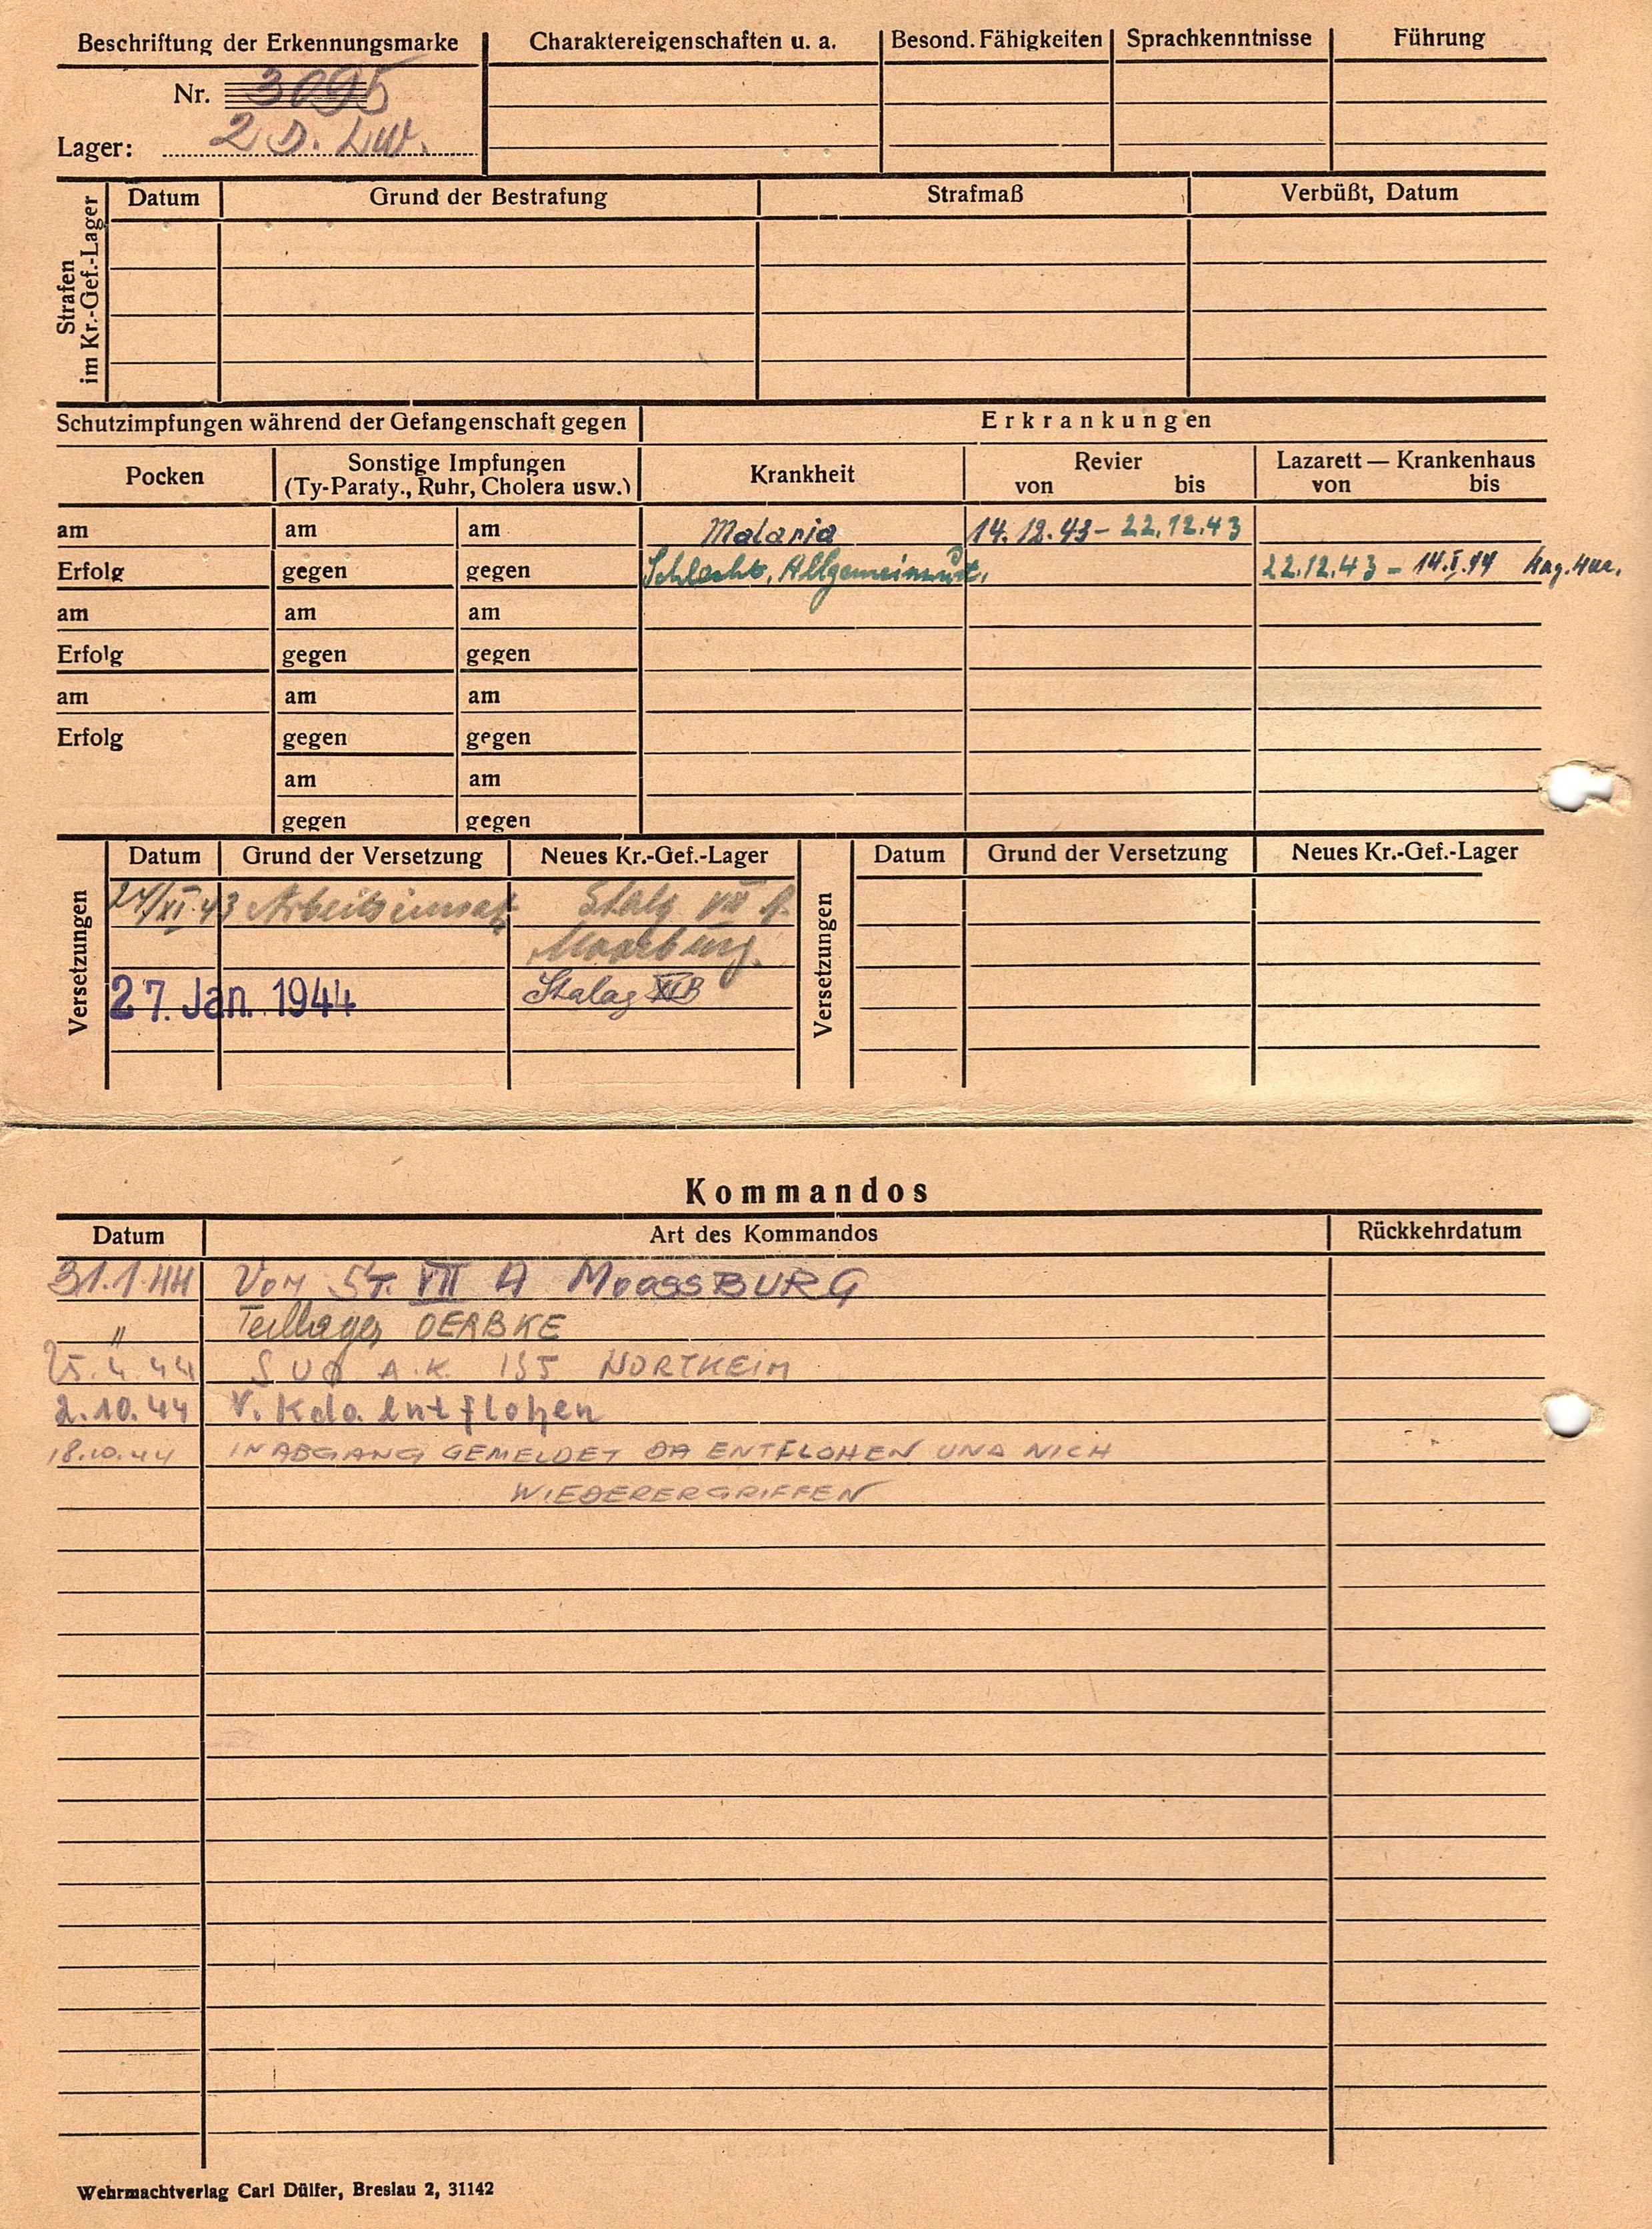 Beschriftung der Erkennungsmarke Charaktereigenschaften u. a. Besond. Fähigkeiten Sprachkenntnisse Führung
Nr. 3095
Lager: 2 D. LW.
Strafen im Kr.-Gef.-Lager
Datum Grund der Bestrafung Strafmaß Verbüßt, Datum
Schutzimpfungen während der Gefangenschaft gegen Erkrankungen
Pocken Sonstige Impfungen (Ty-Paraty., Ruhr, Cholera usw.) Krankheit Revier von bis Lazarett — Krankenhaus von bis
am am am Malaria 14.12.43 – 22.12.43
Erfolg gegen gegen Schlecht. Allgemeinzust. 22.12.43 – 14.I.44
am am am
Erfolg gegen gegen
am am am
Erfolg gegen gegen
am am
gegen gegen
Versetzungen Datum Grund der Versetzung Neues Kr.-Gef.-Lager Versetzungen Datum Grund der Versetzung Neues Kr.-Gef.-Lager
24/XI.43 Arbeitseinsatz Stalg VII A.
Moosburg.
27. Jan. 1944 Stalag XI B
Kommandos
Datum Art des Kommandos Rückkehrdatum
31.1.44 Von ST. VII A MOOSSBURG
" Teillager OERBKE
25.4.44 A.K. 155 NORTHEIM
2.10.44 v. Kdo. entflohen
18.10.44 IN ABGANG GEMELDET DA ENTFLOHEN UND NICH
WIEDERERGRIFFEN
Wehrmachtverlag Carl Dülfer, Breslau 2, 31142